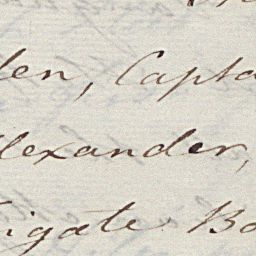 len, Capta
lexander,
rigate Bo